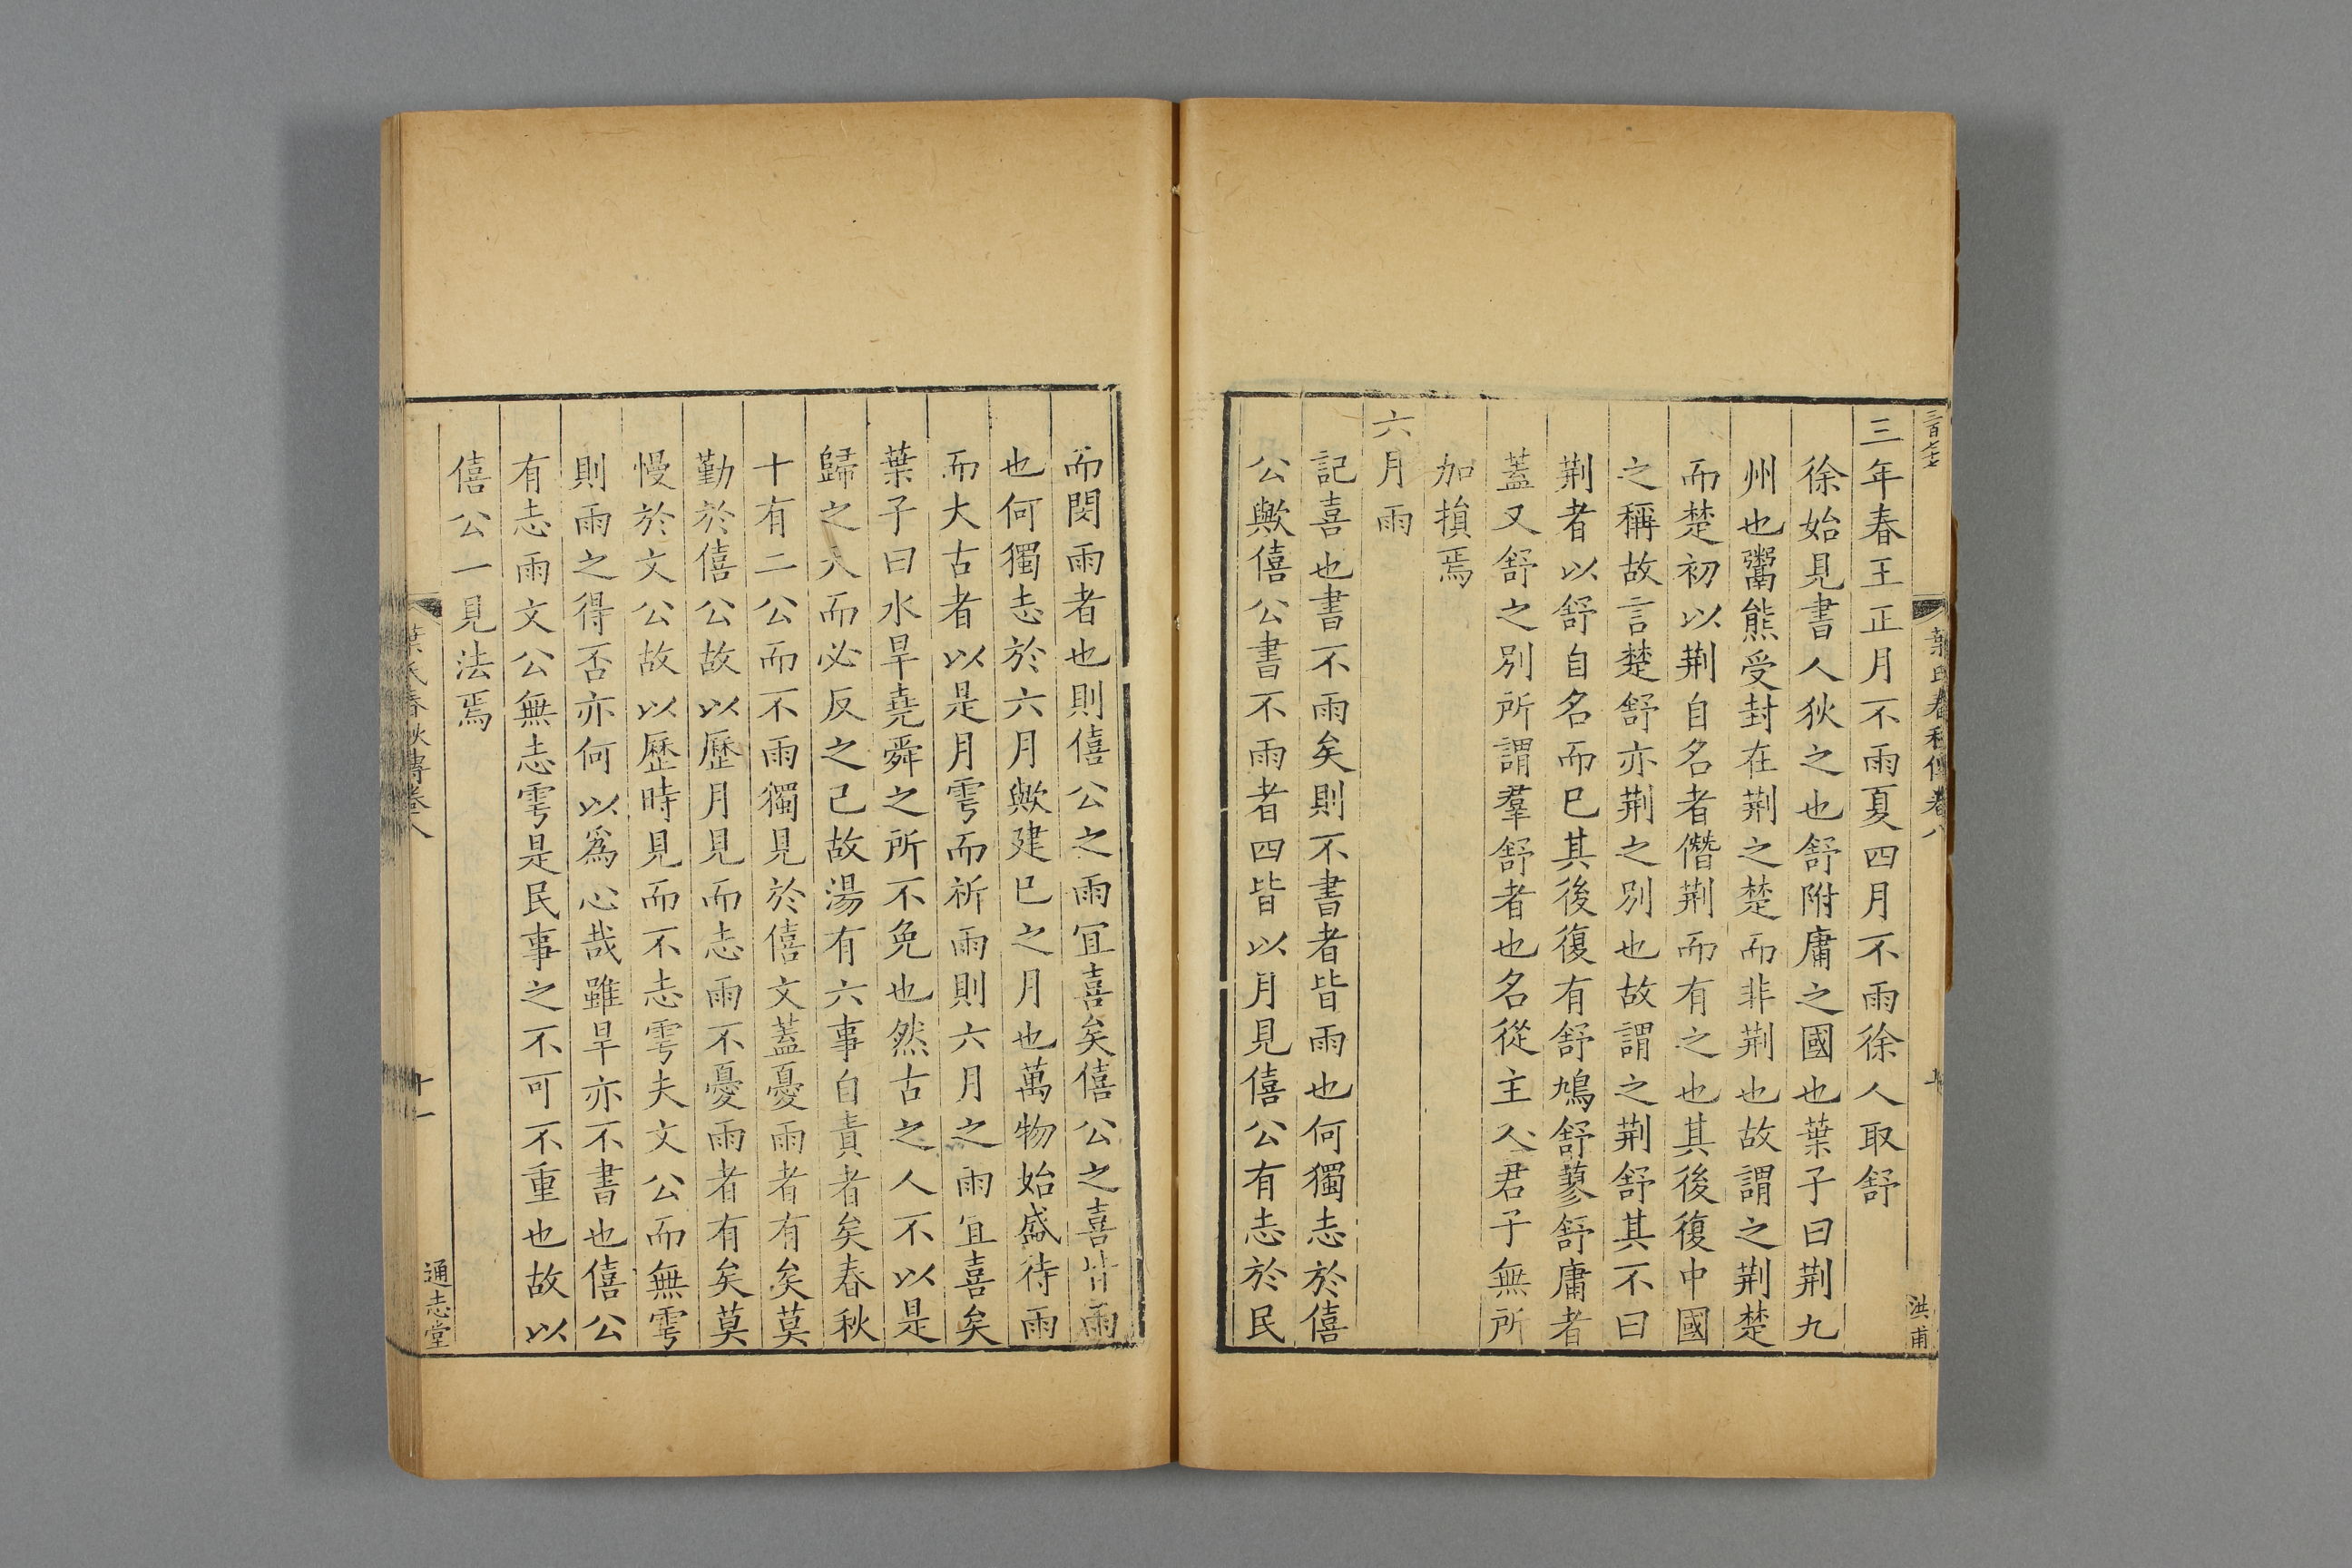 葉氏春秋傳卷八
洪甫
三年春王正月不雨夏四月不雨徐人取舒
徐始見書人狄之也舒附庸之國也葉子曰荆九
州也鬻熊受封在荆之楚而非荆也故謂之荆楚
而楚初以荆自名者僭荆而有之也其後復中國
之稱故言楚舒亦荆之别也故謂之荆舒其不曰
荆者以舒自名而已其後復有舒鳩舒蓼舒庸者
蓋又舒之别所謂羣舒者也名從主人君子無所
加損焉
六月雨
記喜也書不雨矣則不書者皆雨也何獨志於僖
公歟僖公書不雨者四皆以月見僖公有志於民
而閔雨者也則僖公之雨宜喜矣僖公之喜皆雨
也何獨志於六月歟建巳之月也萬物始盛待雨
而大古者以是月雩而祈雨則六月之雨宜喜矣
葉子曰水旱堯舜之所不免也然古之人不以是
歸之天而必反之己故湯有六事自責者矣春秋
十有二公而不雨獨見於僖文蓋憂雨者有矣莫
勤於僖公故以歷月見而志雨不憂雨者有矣莫
慢於文公故以歷時見而不志雩夫文公而無雩
則雨之得否亦何以爲心哉雖旱亦不書也僖公
有志雨文公無志雩是民事之不可不重也故以
僖公一見法焉
葉氏春秋傳卷八
十一
通志堂